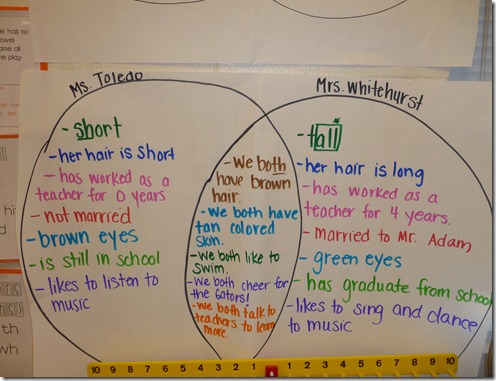 Ms. Toledo
- short
- her hair is short
- has worked as a
teacher for 0 years
- not married
- brown eyes
- is still in school
- likes to listen to
music
- we both
have brown
hair.
- we both have
tan colored
skin.
- we both like to
swim.
- we both cheer for
the Gators!
- we both talk to
teachers to learn
more.
Mrs. Whitehurst
- tall
- her hair is long
- has worked as a
teacher for 4 years.
- married to Mr. Adam
- green eyes
- has graduate from school
- likes to sing and dance
to music
10 9 8 7 6 5 4 3 2 1 1 2 3 4 5 6 7 8 9 10